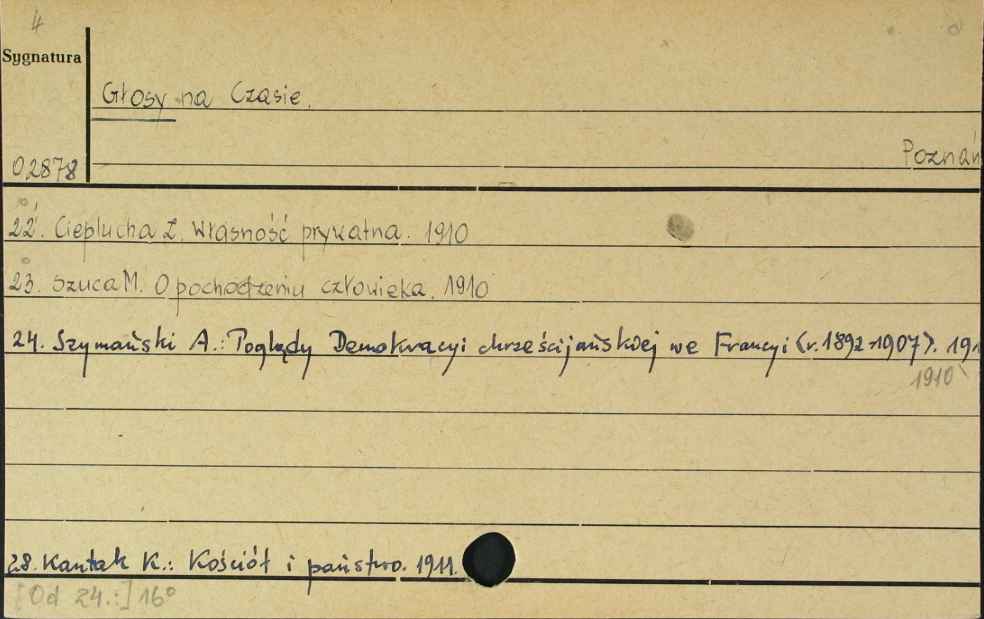 4
Sygnatura
Głosy na Czasie.
Poznań
02878
22. Cieplucha Z. Własność prywatna. 1910
23. Szuca M. O pochodzeniu człowieka. 1910
24. Szymański A.: Poglądy Demokracyi chrześcijańskiej we Francyi (r. 1892-1907). 191
1910
28. Kantak K.: Kościół i państwo. 1911.
[Od 24.:] 16°